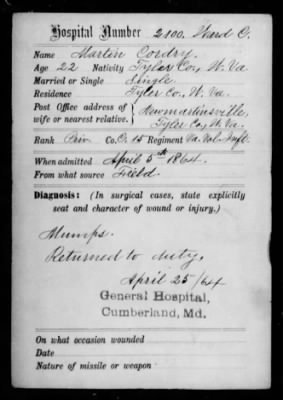 Hospital Number 2100. Ward C.
Name Martin Cordry.
Age 22 Nativity Tyler Co., W. Va
Married or Single Single.
Residence Tyler Co., W. Va.
Post Office address of wife or nearest relative. Newmartinsville, Tyler Co., W. Va.
Rank Priv. Co. G. 15 Regiment Va. Vol. Inft.
When admitted April 5th 1864.
From what source Field
Diagnosis: (In surgical cases, state explicitly
seat and character of wound or injury.)
Mumps.
Returned to duty,
April 25/64
General Hospital,
Cumberland, Md.
On what occasion wounded
Date
Nature of missile or weapon